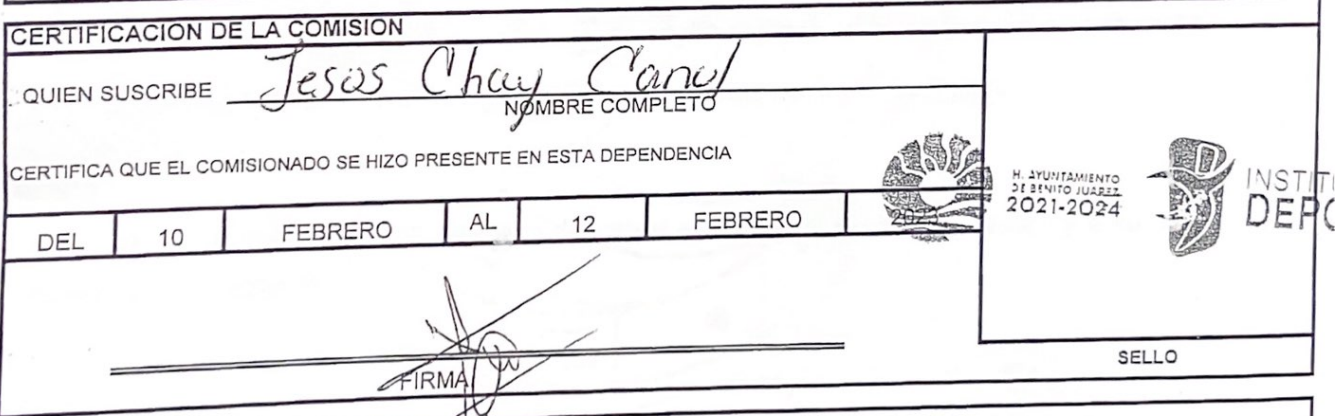 CERTIFICACION DE LA COMISION
QUIEN SUSCRIBE Jesús Chay Canul
NOMBRE COMPLETO
CERTIFICA QUE EL COMISIONADO SE HIZO PRESENTE EN ESTA DEPENDENCIA
DEL 10 FEBRERO AL 12 FEBRERO 2023
H. AYUNTAMIENTO
DE BENITO JUAREZ
2021-2024
INSTIT
DEPO
FIRMA
SELLO